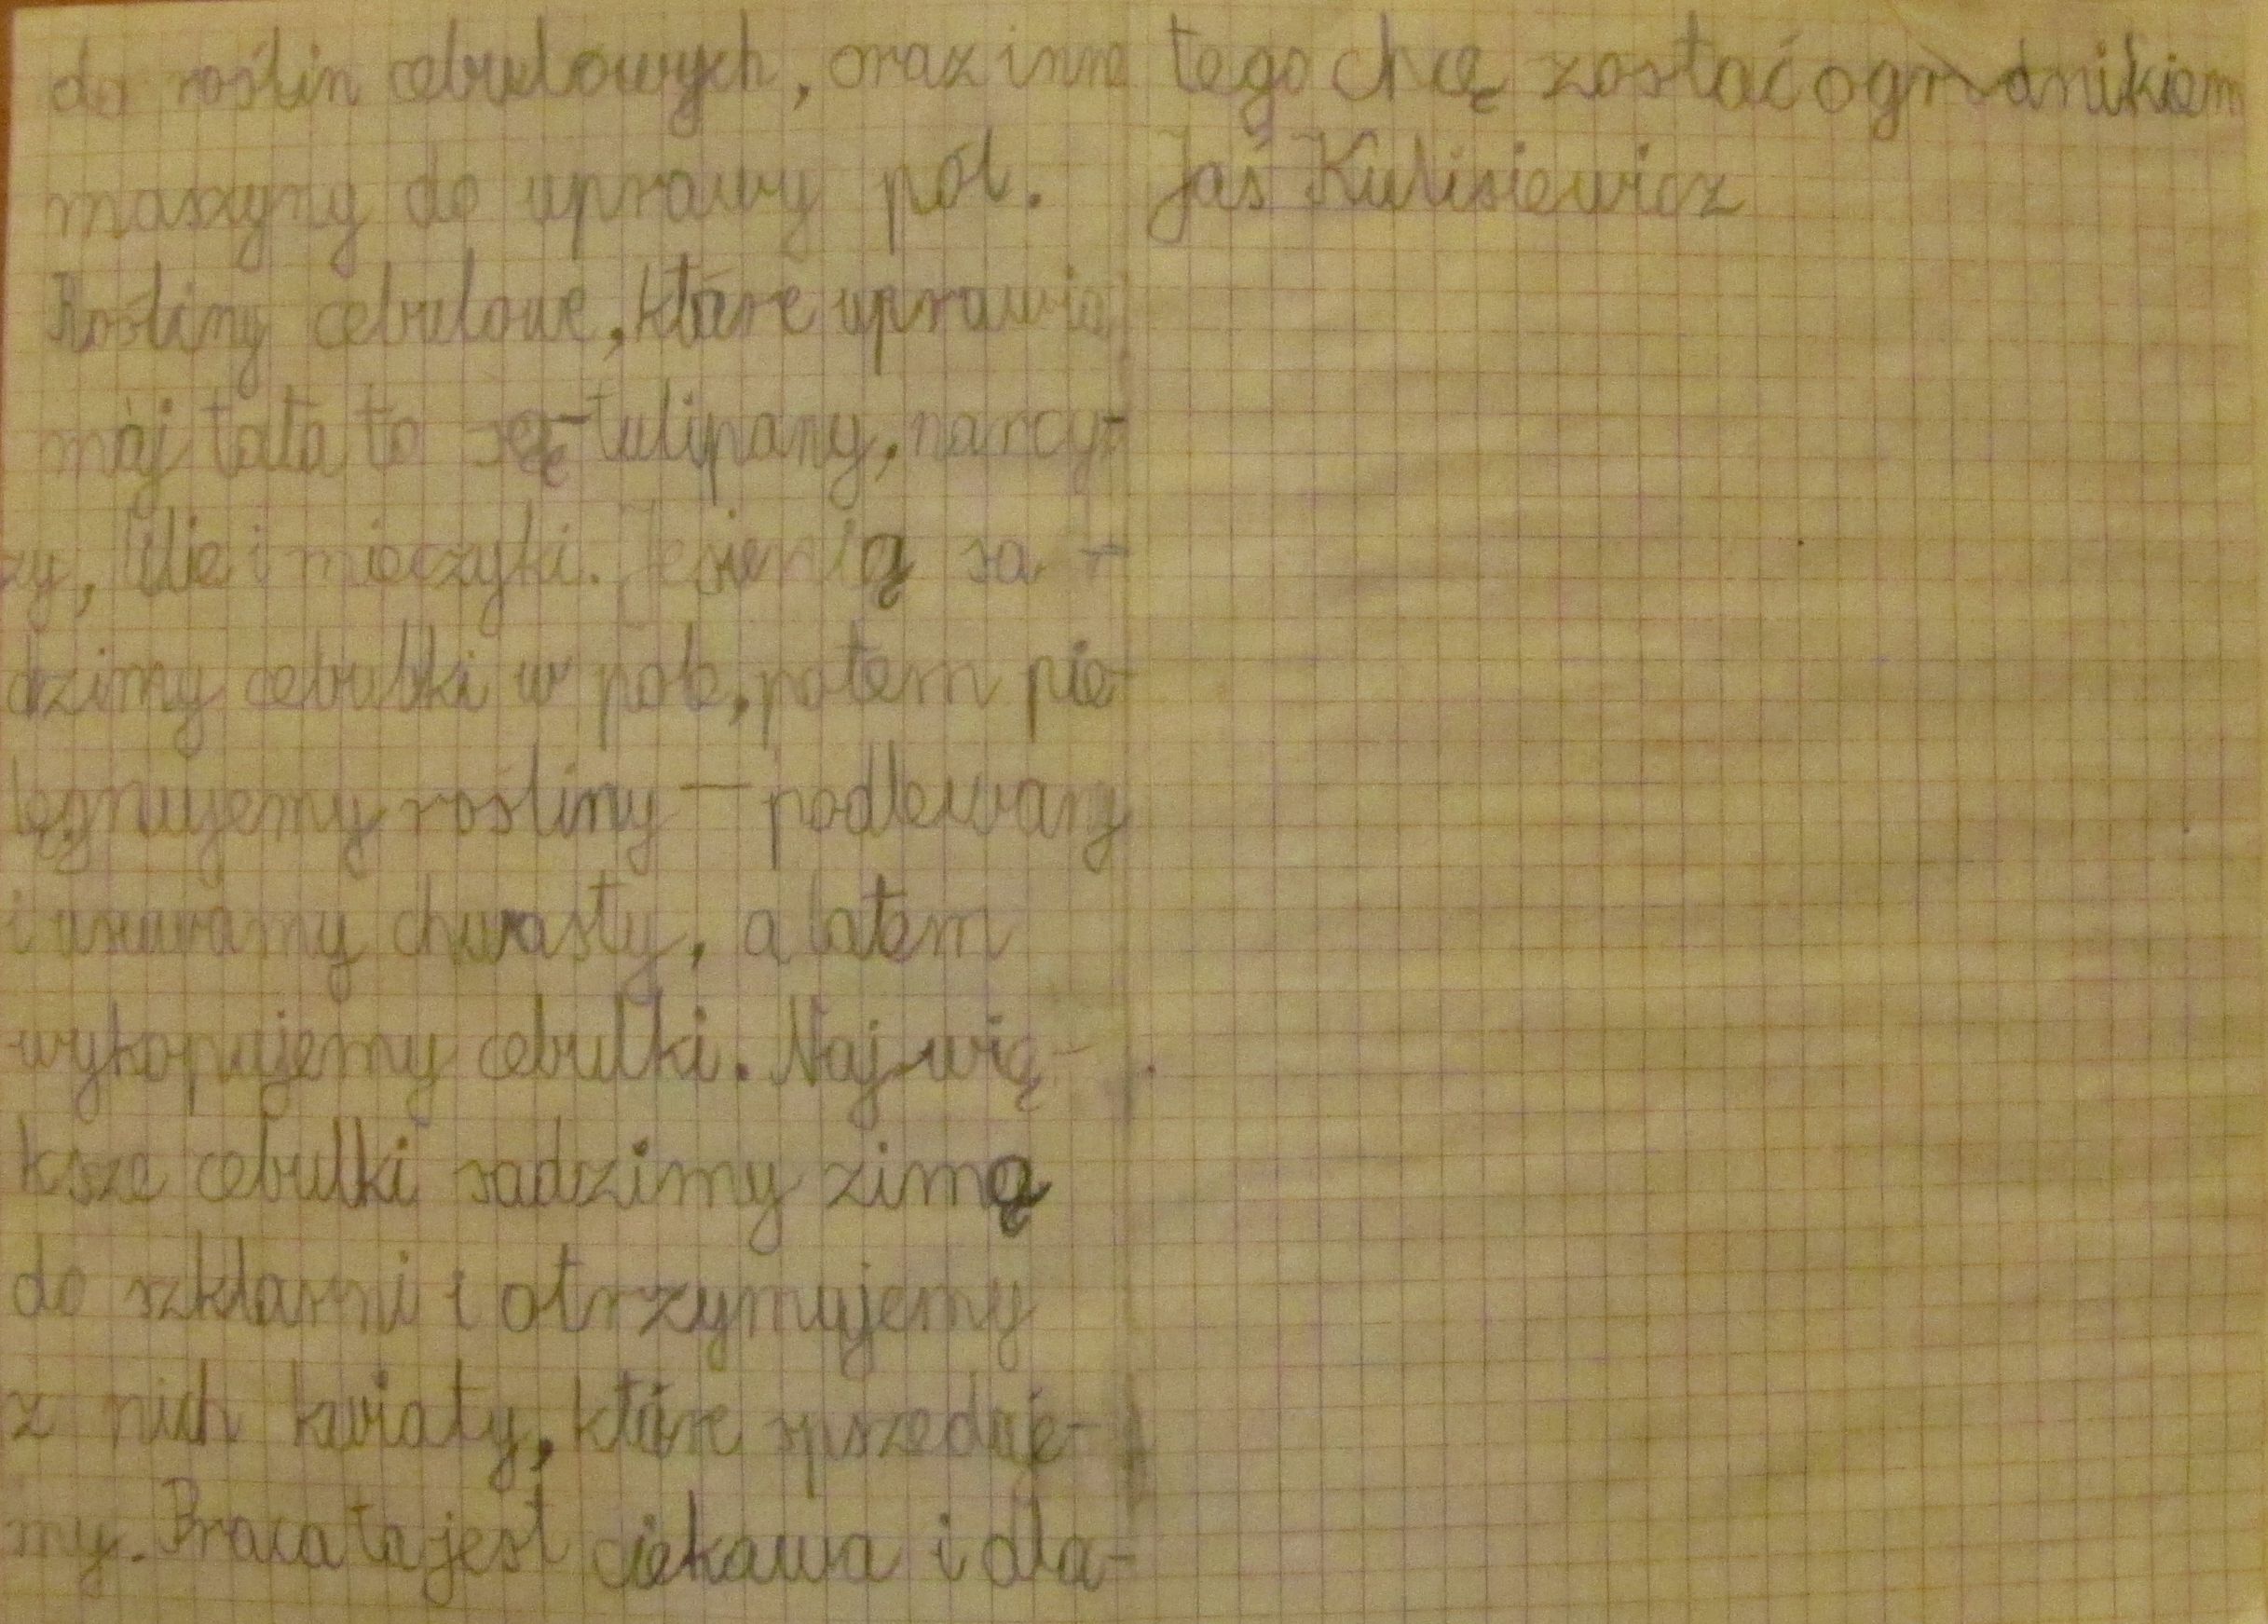 do roślin cebulowych, oraz inne
maszyny do uprawy pól.
Rośliny cebulowe, które uprawia
mój tata to są-tulipany, narcy-
zy, lilie i mieczyki. Jesienią sa-
dzimy cebulki w pole, potem pie-
lęgnujemy rośliny - podlewamy
i usuwamy chwasty, a latem
wykopujemy cebulki. Najwię-
ksze cebulki sadzimy zimą
do szklarni i otrzymujemy
z nich kwiaty, które sprzedaje-
my. Praca ta jest ciekawa i dla-
tego chcę zostać ogrodnikiem
Jaś Kulisiewicz